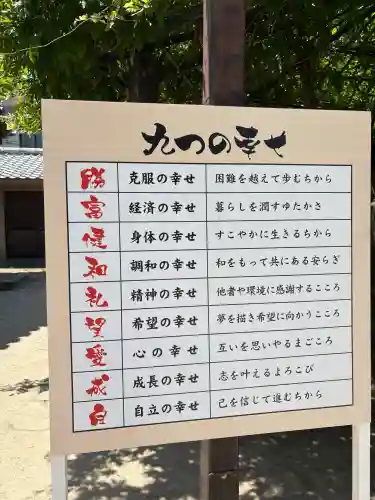 九つの幸せ
勝 克服の幸せ 困難を越えて歩むちから
富 経済の幸せ 暮らしを潤すゆたかさ
健 身体の幸せ すこやかに生きるちから
和 調和の幸せ 和をもって共にある安らぎ
礼 精神の幸せ 他者や環境に感謝するこころ
望 希望の幸せ 夢を描き希望に向かうこころ
愛 心の幸せ 互いを思いやるまごころ
成 成長の幸せ 志を叶えるよろこび
自 自立の幸せ 己を信じて進むちから